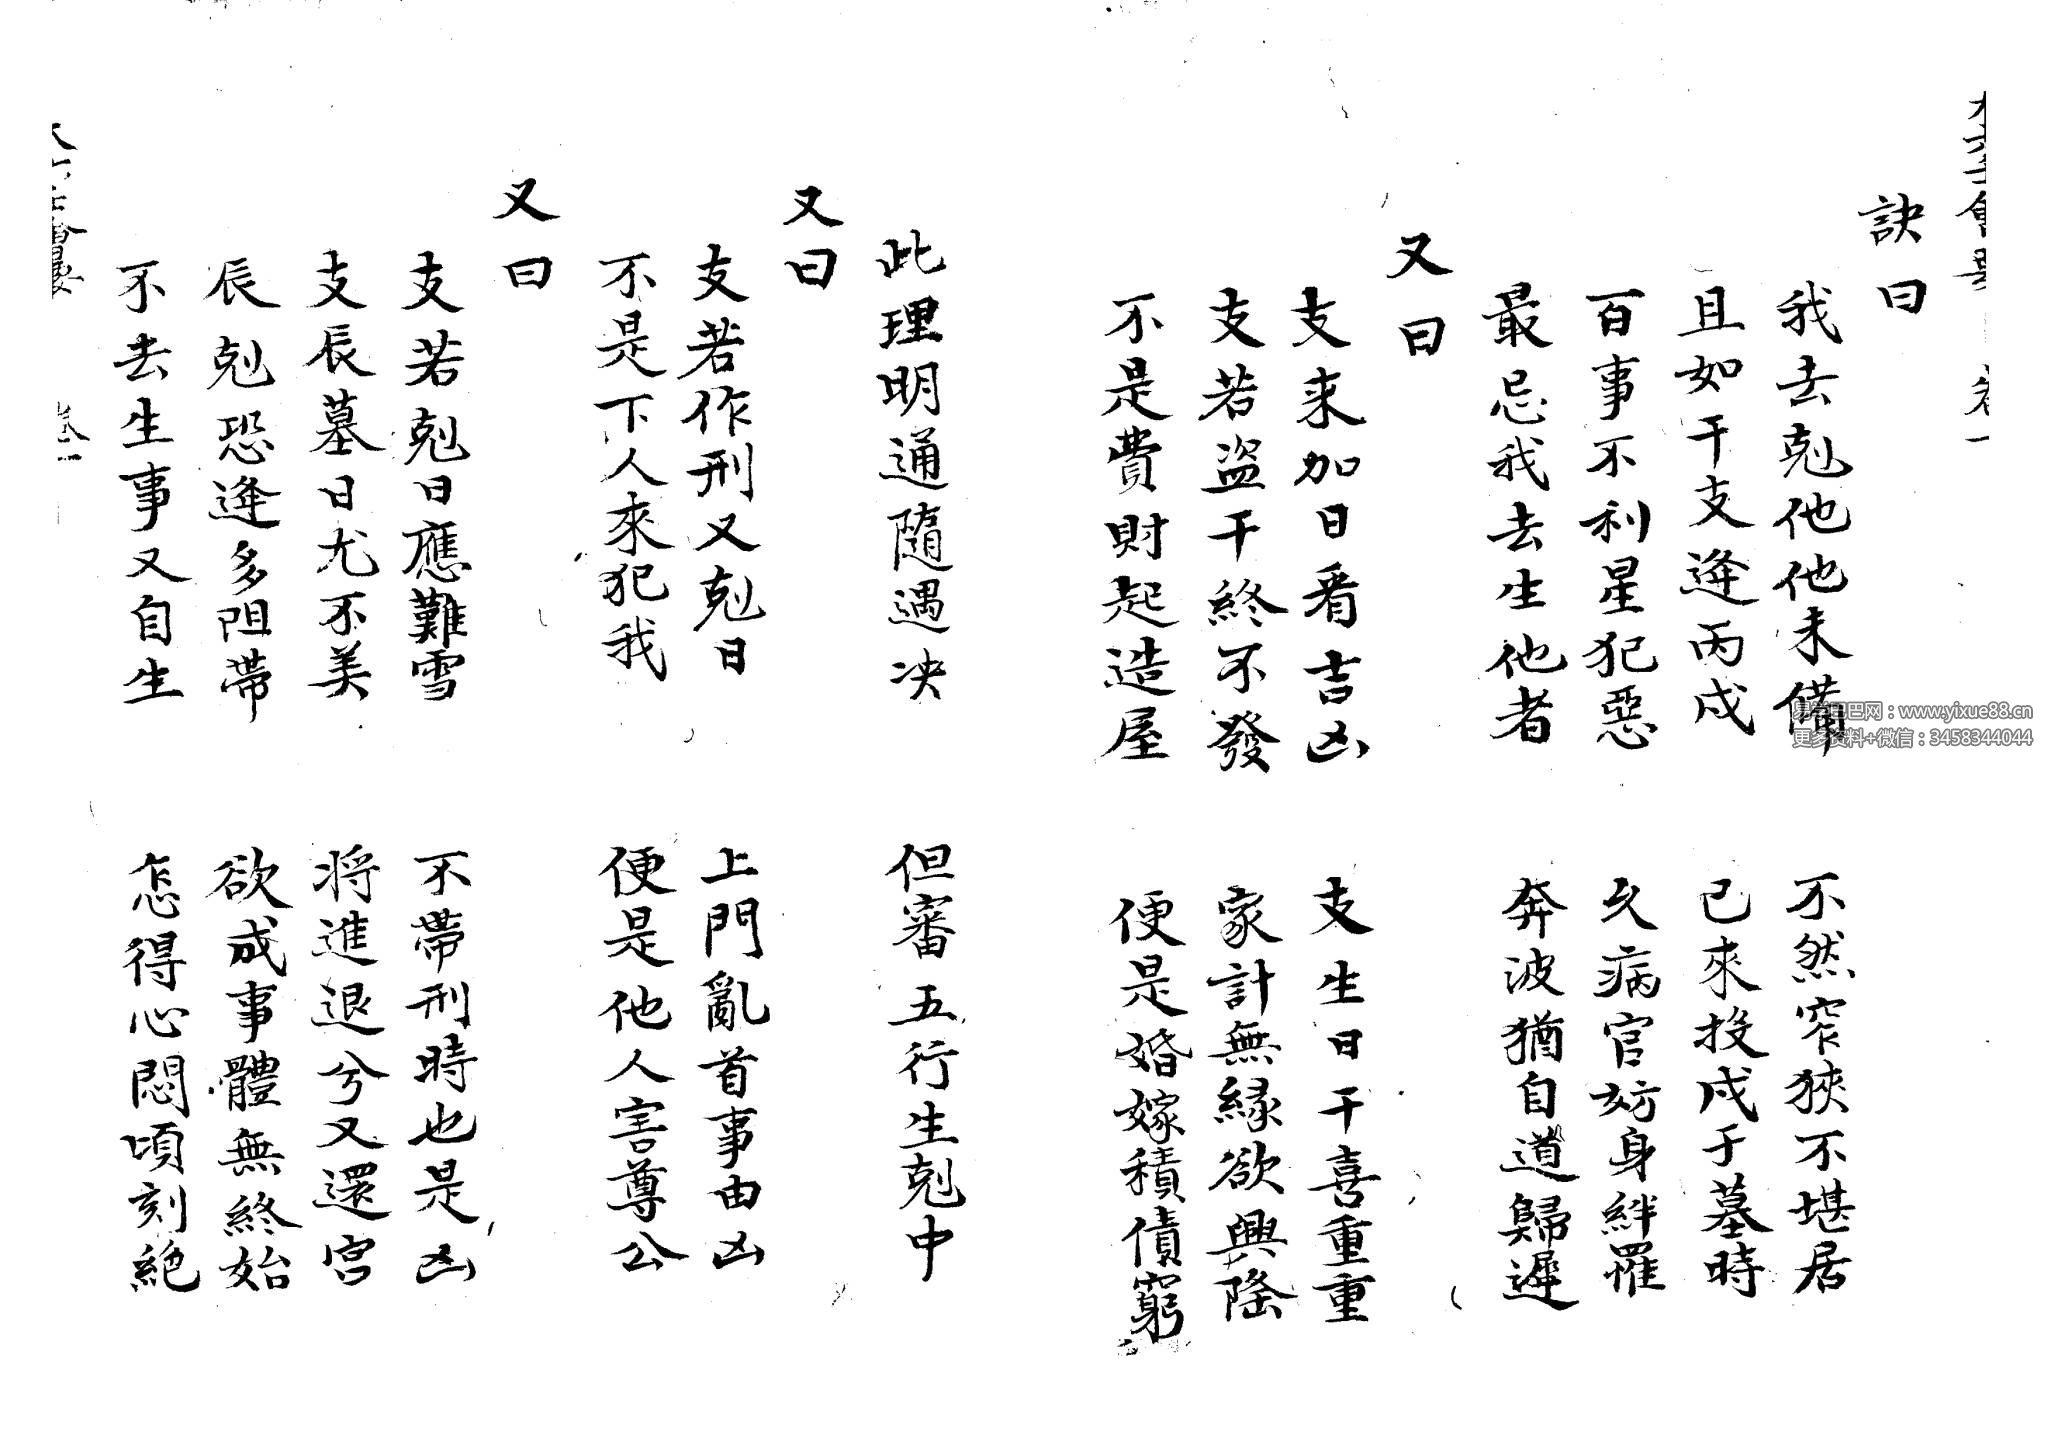 大六壬會要 卷一
訣曰
我去剋他他未備 不然窄狹不堪居
且如干支逢丙戌 已來投戌于墓時
百事不利星犯惡 久病官妨身絆羅
最忌我去生他者 奔波猶自道歸遲
又曰
支来加日看吉凶 支生日干喜重重
支若盜干終不發 家計無緣欲興隆
不是費財起造屋 便是婚嫁積債窮
此理明通隨遇决 但審五行生剋中
又曰
支若作刑又剋日 上門亂首事由凶
不是下人來犯我 便是他人害尊公
又曰
支若剋日應難雪 不帶刑時也是凶
支辰墓日尤不美 将進退兮又還宮
辰剋恐逢多阻帶 欲成事體無終始
不去生事又自生 怎得心悶頃刻絶
大六壬會要 卷一
易学巴巴网：www.yixue88.cn
更多资料+微信：3458344044